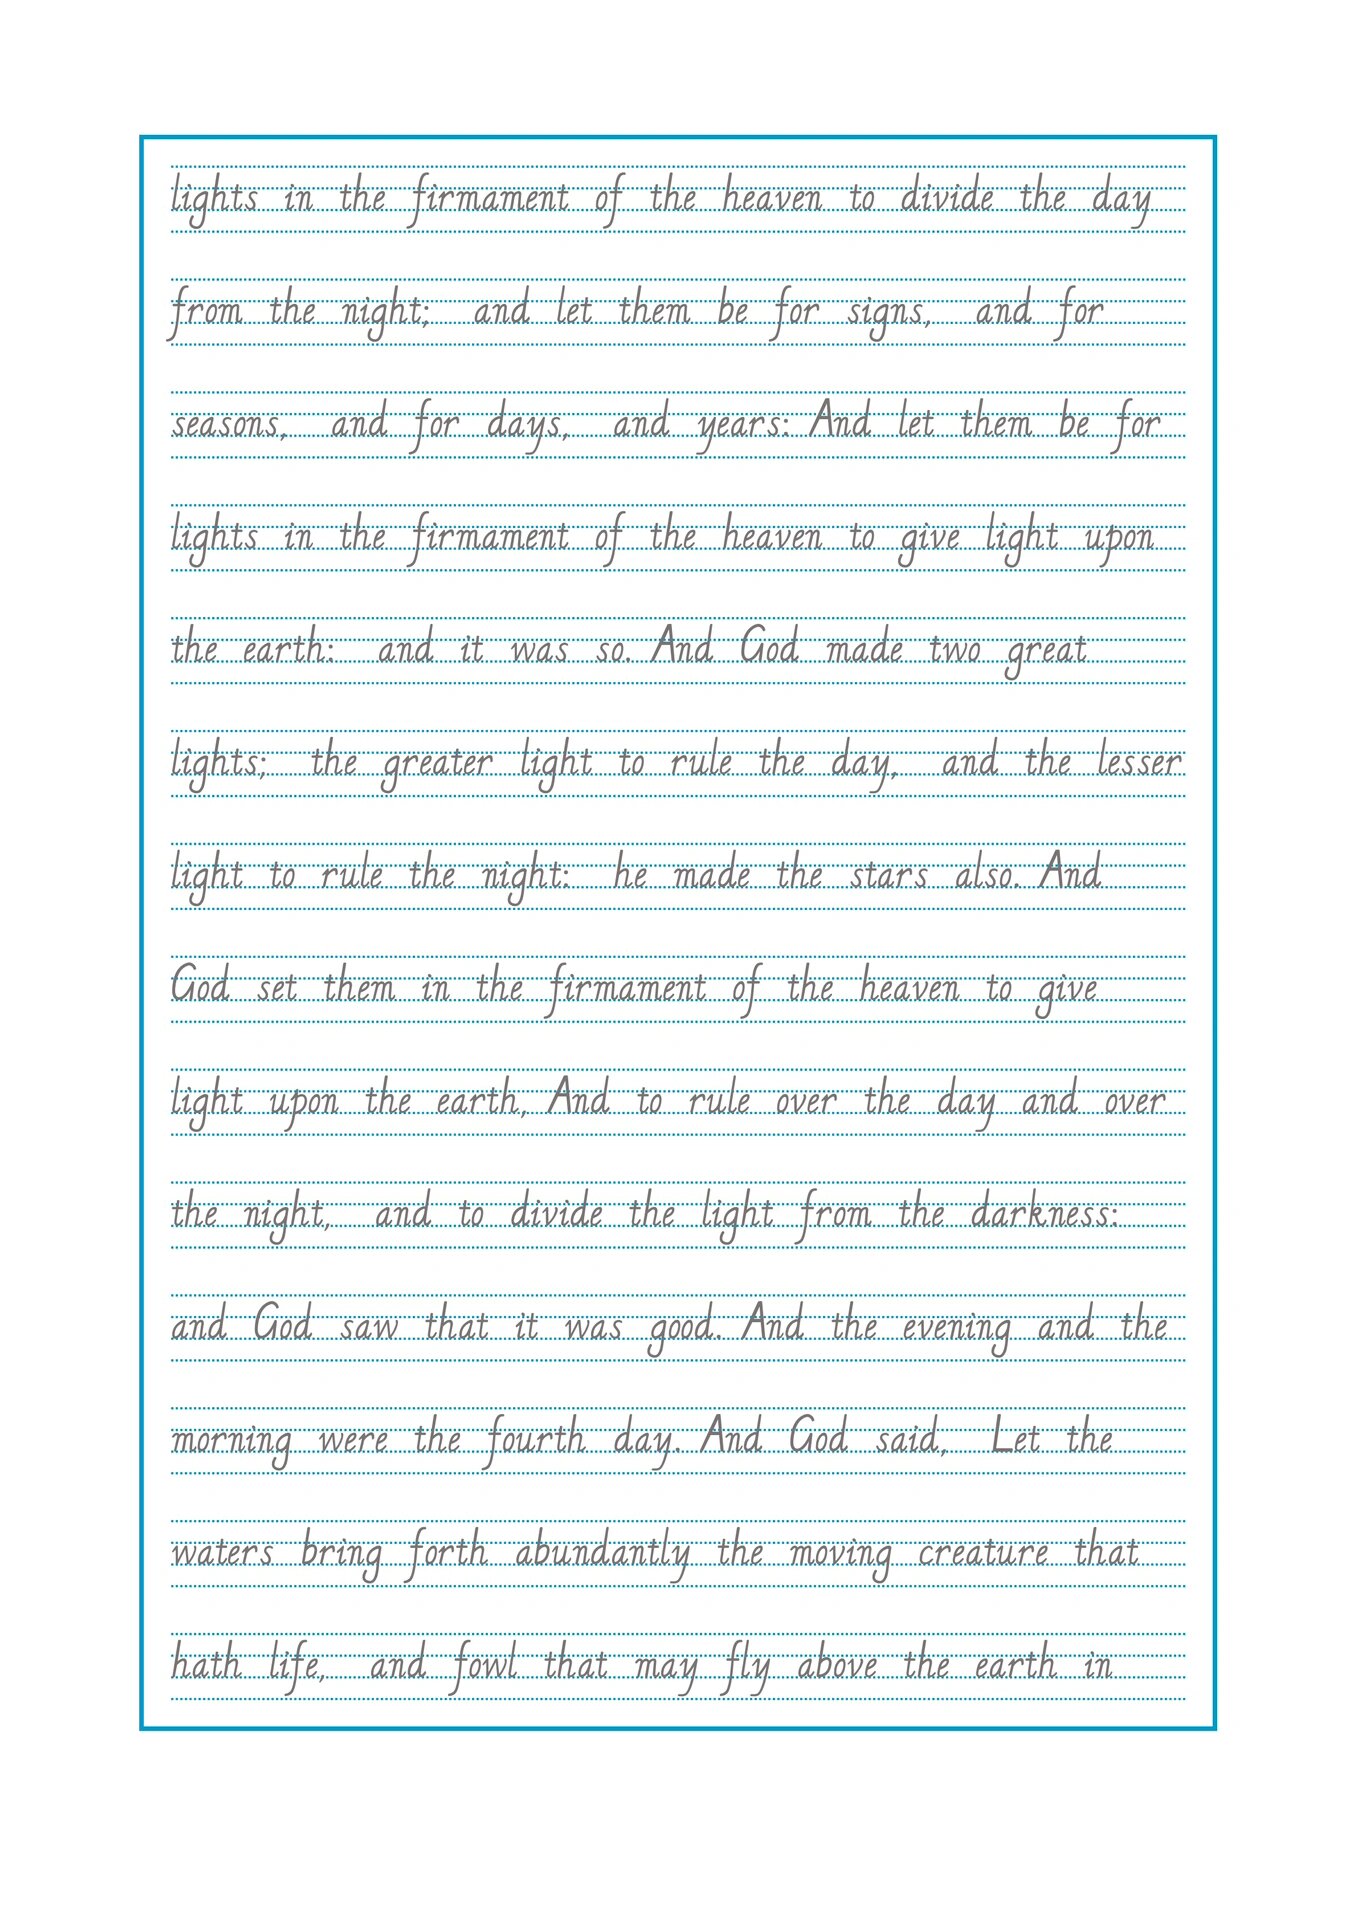 lights in the firmament of the heaven to divide the day
from the night; and let them be for signs, and for
seasons, and for days, and years: And let them be for
lights in the firmament of the heaven to give light upon
the earth: and it was so. And God made two great
lights; the greater light to rule the day, and the lesser
light to rule the night: he made the stars also. And
God set them in the firmament of the heaven to give
light upon the earth, And to rule over the day and over
the night, and to divide the light from the darkness:
and God saw that it was good. And the evening and the
morning were the fourth day. And God said, Let the
waters bring forth abundantly the moving creature that
hath life, and fowl that may fly above the earth in